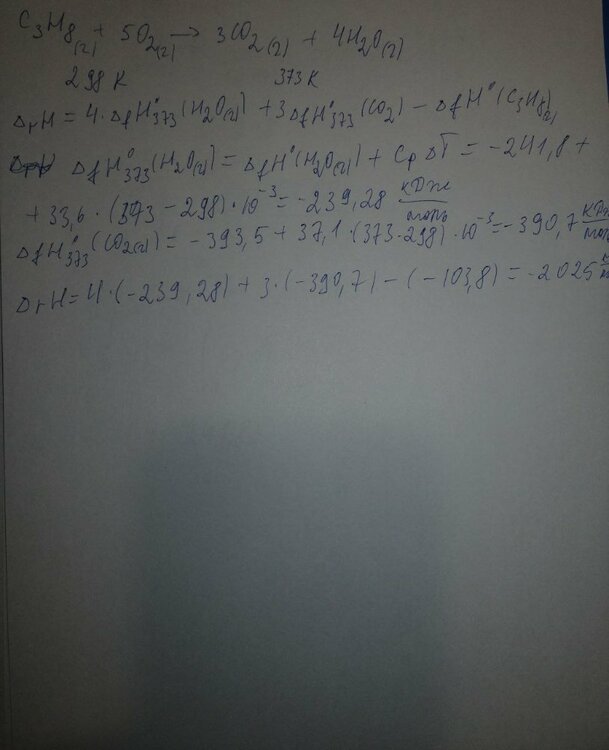 C₃H₈(г) + 5O₂(г) → 3CO₂(г) + 4H₂O(г)
298 К 373 К
ΔrH = 4·ΔfH°₃₇₃(H₂O(г)) + 3ΔfH°₃₇₃(CO₂) − ΔfH°(C₃H₈(г))
ΔfH°₃₇₃(H₂O(г)) = ΔfH°(H₂O(г)) + Cp ΔT = −241,8 +
+ 33,6 · (373 − 298) · 10⁻³ = −239,28 кДж/моль
ΔfH°₃₇₃(CO₂(г)) = −393,5 + 37,1 · (373 − 298) · 10⁻³ = −390,7 кДж/моль
ΔrH = 4 · (−239,28) + 3 · (−390,7) − (−103,8) = −2025